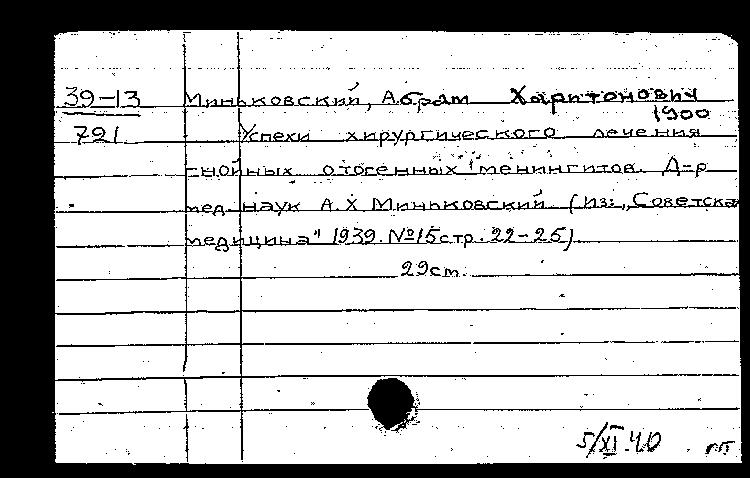 39-13 Миньковский, Абрам Харитонович
1900
791 Успехи хирургического лечения
гнойных отогенных менингитов. Д-р
мед. наук А.Х Миньковский (Из: „Советская
медицина" 1939. №15 стр. 22-25)
29 см.
5/XI.40